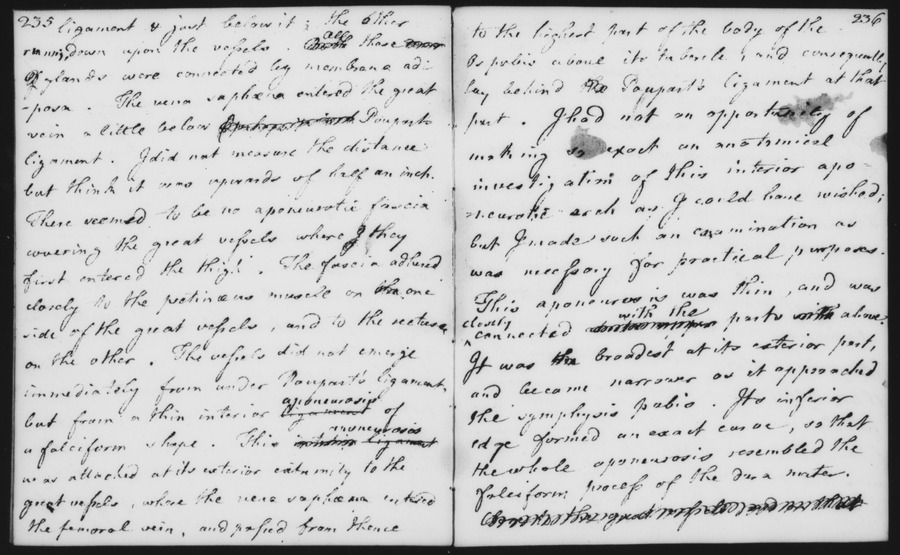 235
ligament & just below it; the other
running down upon the vessels. all those
glands were connected by membrana adi-
-posa. The vena saphæna entered the great
vein a little below Pouparts
ligament. I did not measure the distance
but think it was upwards of half an inch.
There seemed to be no aponeurotic fascia
covering the great vessels where they
first entered the thigh. The fascia adhered
closely to the pectinæus muscle on one
side of the great vessels, and to the rectus
on the other. The vessels did not emerge
immediately from under Poupart's ligament,
but from a thin interior aponeurosis of
a falciform shape. This
was attached at its exterior extremity to the
great vessels, where the vena saphæna entered
the femoral vein, and passed from thence
236
to the highest part of the body of the
Os pubis above its tubercle; and consequently
lay behind the Poupart's ligament at that
part. I had not an opportunity of
making so exact an anatomical
investigation of this interior apo=
=neurotic arch as I could have wished;
but I made such an examination as
was necessary for practical purposes.
This aponeurosis was thin, and was
closely connected with the parts above.
It was broadest at its exterior part,
and became narrower as it approached
the symphysis pubis. Its inferior
edge formed an exact curve, so that
the whole aponeurosis resembled the
falciform process of the dura mater.